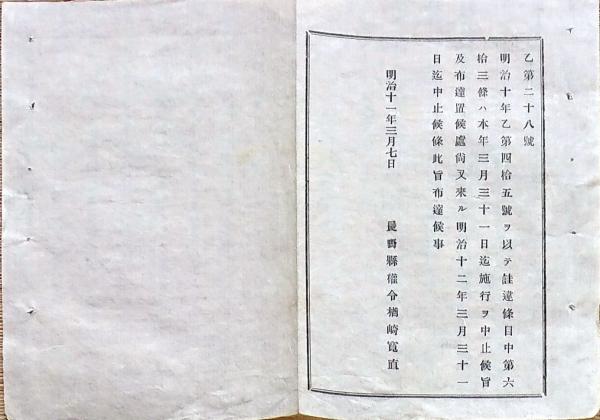 乙第二十八號
明治十年乙第四拾五號ヲ以テ註違條目中第六
拾三條ハ本年三月三十一日迄施行ヲ中止候旨
及布達置候處尙又來ル明治十二年三月三十一
日迄中止候條此旨布達候事
明治十一年三月七日
長野縣權令楢崎寬直